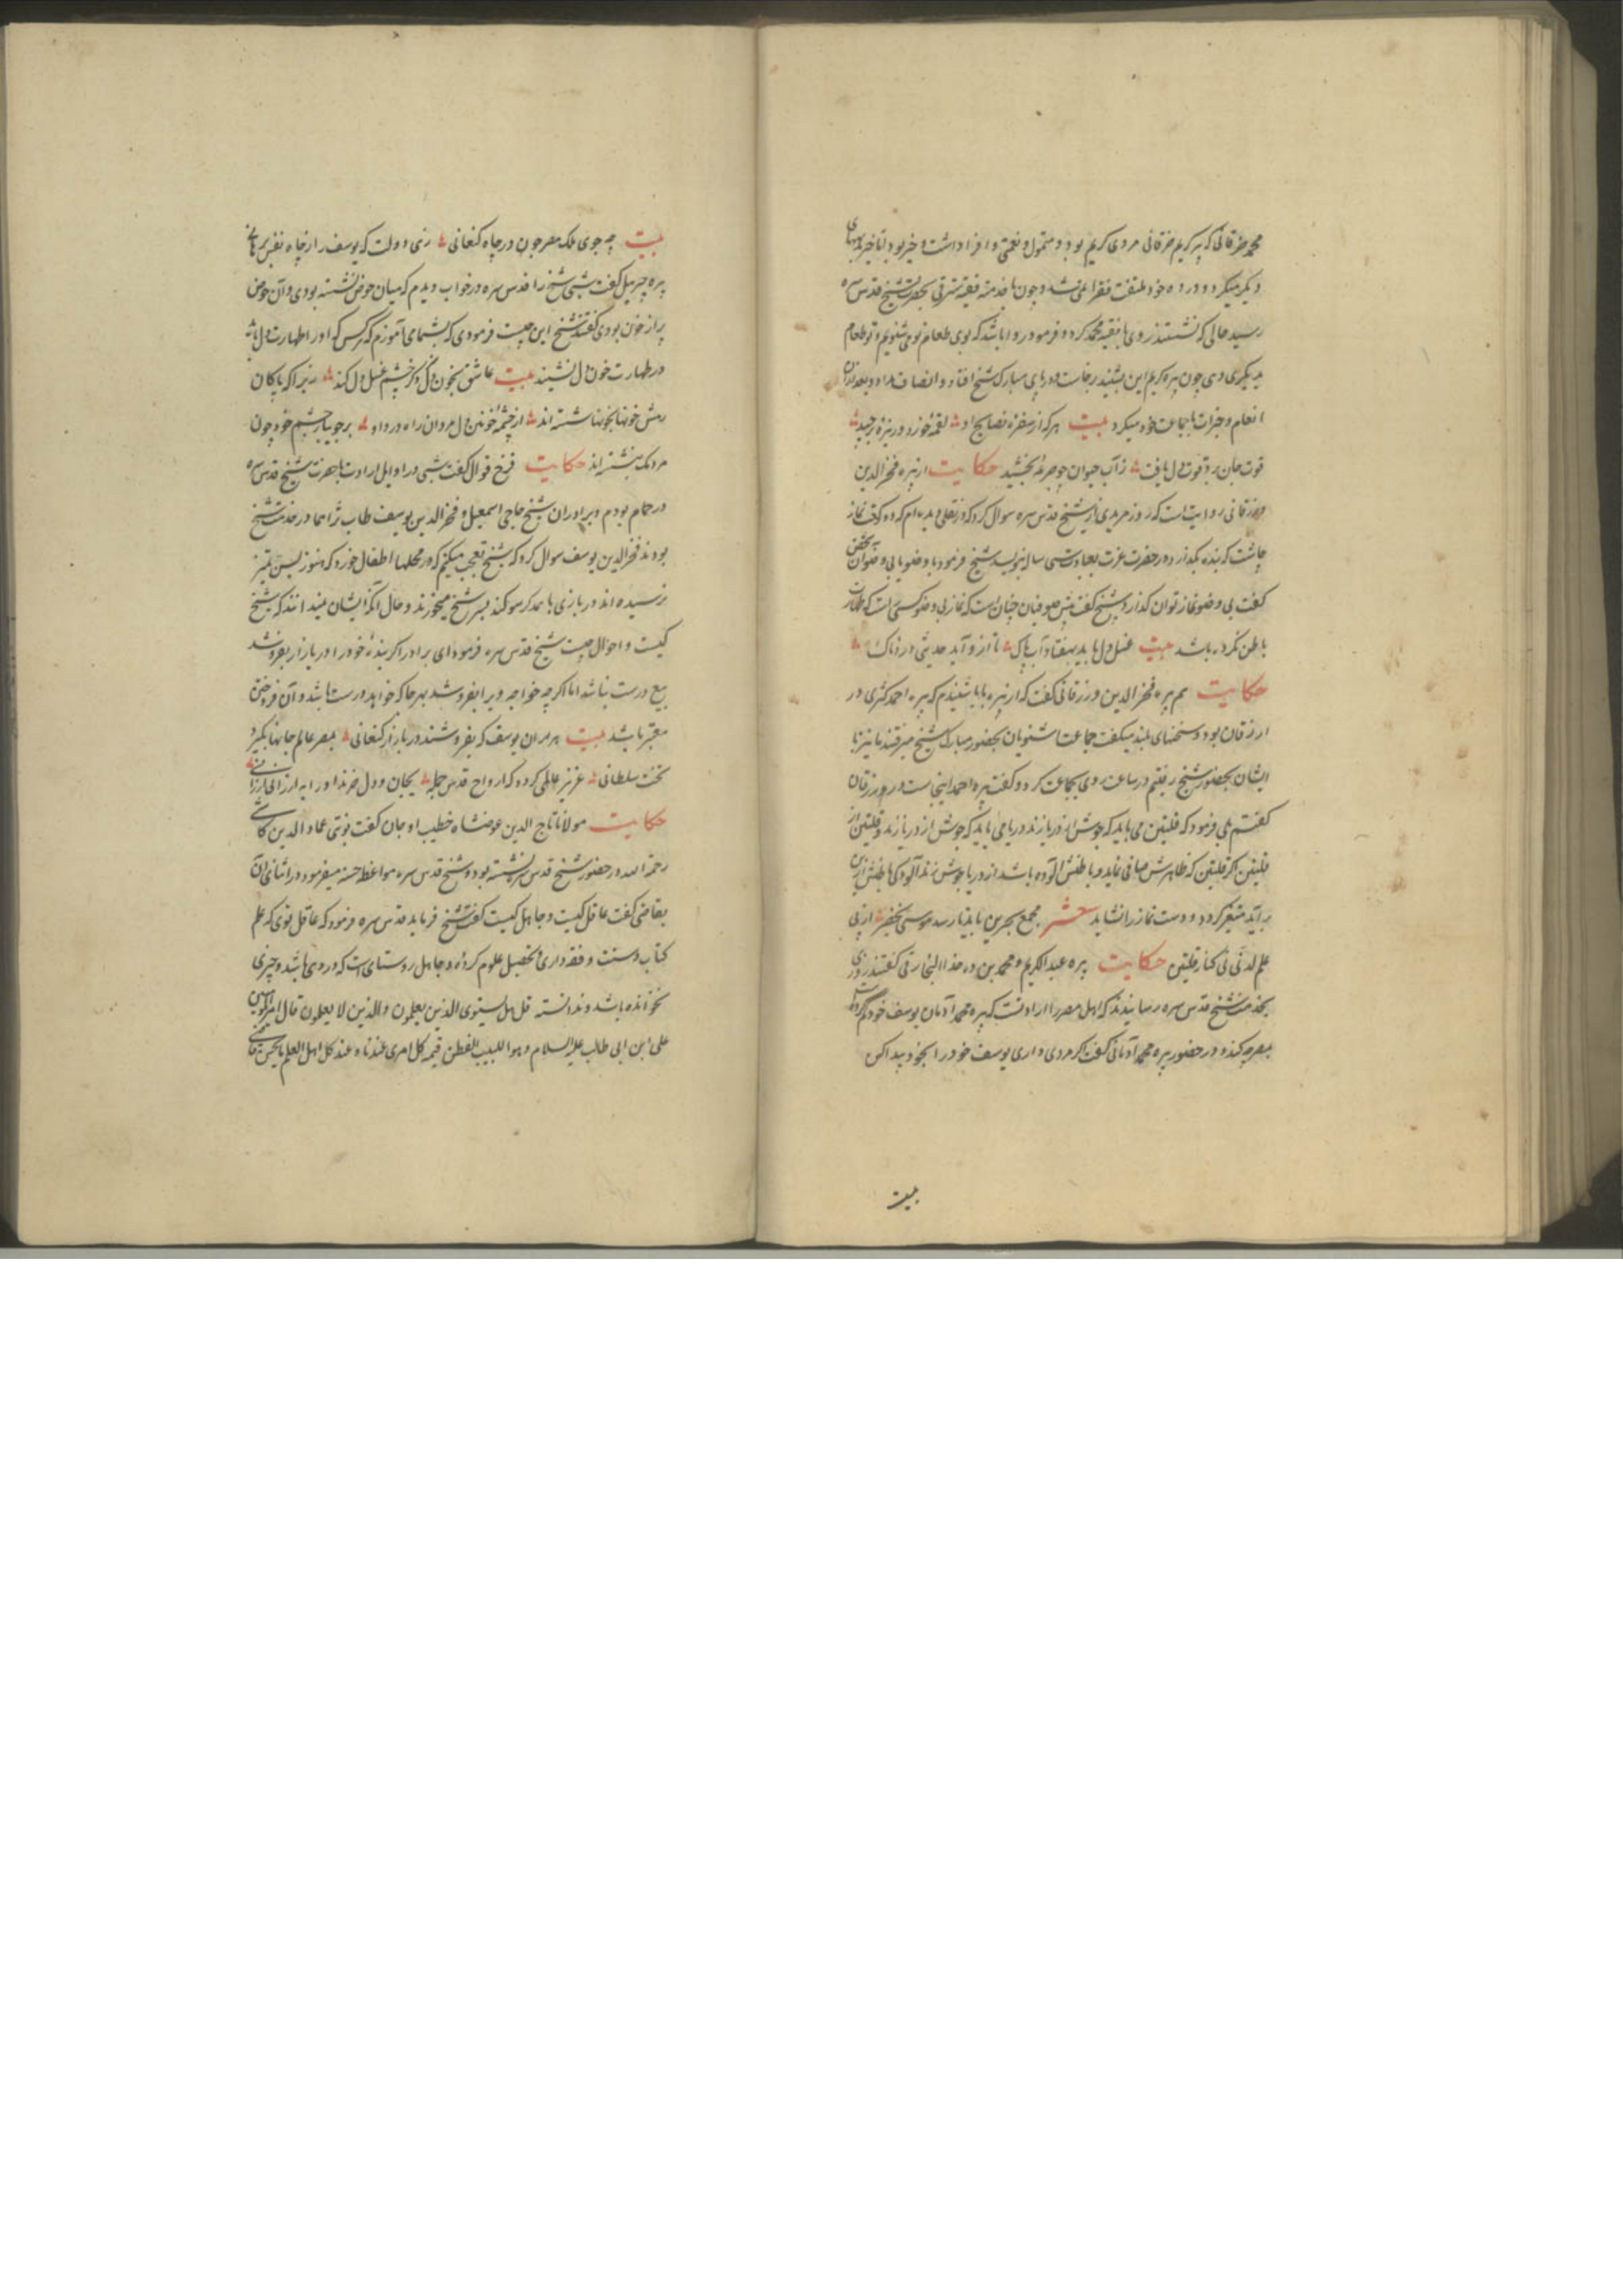 محمد خرقانی که پیر کریم خرقانی مردی کریم بود و متمول و نعمتی وافر داشت و خیر بود اما خیر بجهای
دیکر میکرد و در ده خود ملتفت فقرا نمی شد و چون با خدمته فقیه بحضرت شیخ قدس سره
رسید حالی که نشستند روی با فقیه محمد کرد و فرمود روا باشد که بوی طعام تو می شنویم و تو طعام
میکری وی چون پیره کریم این بشنید برخاست و در پای مبارک شیخ افتاد و انصاف بداد و بعد از ان
انعام و خیرات با جماعت خود میکرد بیت هر که از سفره نصایح او لقمه خورد و ریزه برچید
قوت جان برد و قوت دل یافت ز آب حیوان جرعه بخشید حکایت از پیره فخر الدین
ورزقانی روایت است که روز مریدی از شیخ قدس سره سوال کرد که در نقل دیده ام که دو رکعت نماز
چاشت که بنده بکذارد در حضرت عزت بعبادت سی ساله بنویسد شیخ فرمود با وضو یا بی وضو آن شخص
کفت بی وضو نماز توان کذارد شیخ کفت پیش صوفیان چنان است که نماز بی وضو کسی است که طهارت
باطن نکرده باشد بیت غسل دل باید بهفتاد آب پاک تا از و آید حدیثی دردناک
حکایت هم پیره فخر الدین ورزقانی کفت که از پیره بابا شنیدم که پیره احمد کثری در
ارزقان بود و سخنهای بلند میکفت جماعت شنویان بحضور مبارک شیخ میرفتند ما نیز با
ایشان بحضور شیخ رفتیم در ساعت روی بجماعت کرد و کفت پیره احمد اینجاست در ورزقان
کفتم بلی فرمود که قلتین می باید که جوش از دریا زند دریا می باید که جوش از دریا زند و قلتین از
قلتین اکر قلتین که ظاهرش صافی نماید و باطنش آلوده باشد از دریا جوش زند آلودکی باطنش از وی
بر آید متغیر کردد و دست نماز را نشاید شعر مجمع بحرین باید تا رسد موسی بخضر از پی
علم لدنی نی کنار قلتین حکایت پیره عبد الکریم و محمد بن ده خدا النجارقی کفتند روزی
بخدمت شیخ قدس سره رسانیدند که اهل مصر را ارادتست که پیره محمد آدمان یوسف خود کم کرده است
بمصر چه کند و در حضور پیره محمد آدمانی کفت اکر مردی داری یوسف خود را بخود پیدا کن
بیت
بیت چه جوی ملک مصر جون در چاه کنعانی زهی دولت که یوسف را از چاه نفس برهانی
پیره جبرییل کفت شبی شیخ را قدس سره در خواب دیدم که میان حوض نشسته بودی و آن حوض
پر از خون بودی کفتند شیخ این چیست فرمودی که بشمای آموزم که هر کس که او را طهارت دل باشد
در طهارت خون دل نشیند بیت عاشق بخون دل وز چشم غسل دل کند زیرا که پاکان
رهش خونها بخونها شسته اند از چشمه خونین دل مردان راه درد او بر جویبار چشم خود چون
مردمک بنشسته اند حکایت فرخ قوال کفت شبی در اوایل ارادت با حضرت شیخ قدس سره
در حمام بودم و برادران شیخ حاجی اسمعیل و فخر الدین یوسف طاب ثراهما در خدمت شیخ
بودند فخر الدین یوسف سوال کرد که شیخ تعجب میکنم که در محلها اطفال خورد که هنوز بسن تمیز
نرسیده اند در بازی با همدکر سوکند بسر شیخ میخورند و حال آنکه ایشان نمیدانند که شیخ
کیست و احوال چیست شیخ قدس سره فرمود ای برادر اکر بنده خود را در بازار بفروشد
بیع درست نباشد اما اکر چه خواجه ویرا بفروشد بهر جا که خواهد درست باشد و آن فروختن
معتبر باشد بیت هر مران یوسف که بفروشند در بازار کنعانی بمصر عالم جانها بکیرد
تخت سلطانی عزیز عالمی کردد که ارواح قدس جمله بجان و دل خرند او را به ارزانی ارزانی
حکایت مولانا تاج الدین عوضشاه خطیب اوجان کفت نوبتی عماد الدین کاشی
رحمة الله در حضور شیخ قدس سره نشسته بود و شیخ قدس سره مواعظ حسنه میفرمود در اثنای آن
بقاضی کفت عاقل کیست و جاهل کیست کفت شیخ فرماید قدس سره فرمود که عاقل توی که علم
کتاب و سنت و فقه داری و تحصیل علوم کرده و جاهل روستای است که در دهی باشد و چیزی
نخوانده باشد و ندانسته قل هل یستوی الذین یعلمون والذین لا یعلمون قال امیر المومنین
علی ابن ابی طالب علیه السلام و هو اللبیب الفطن قیمة کل امری عند ناه عند کل اهل العلم ما یحسن